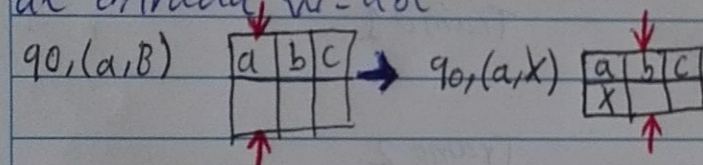 q0,(a,B) a b c → q0,(a,X) a b c
X